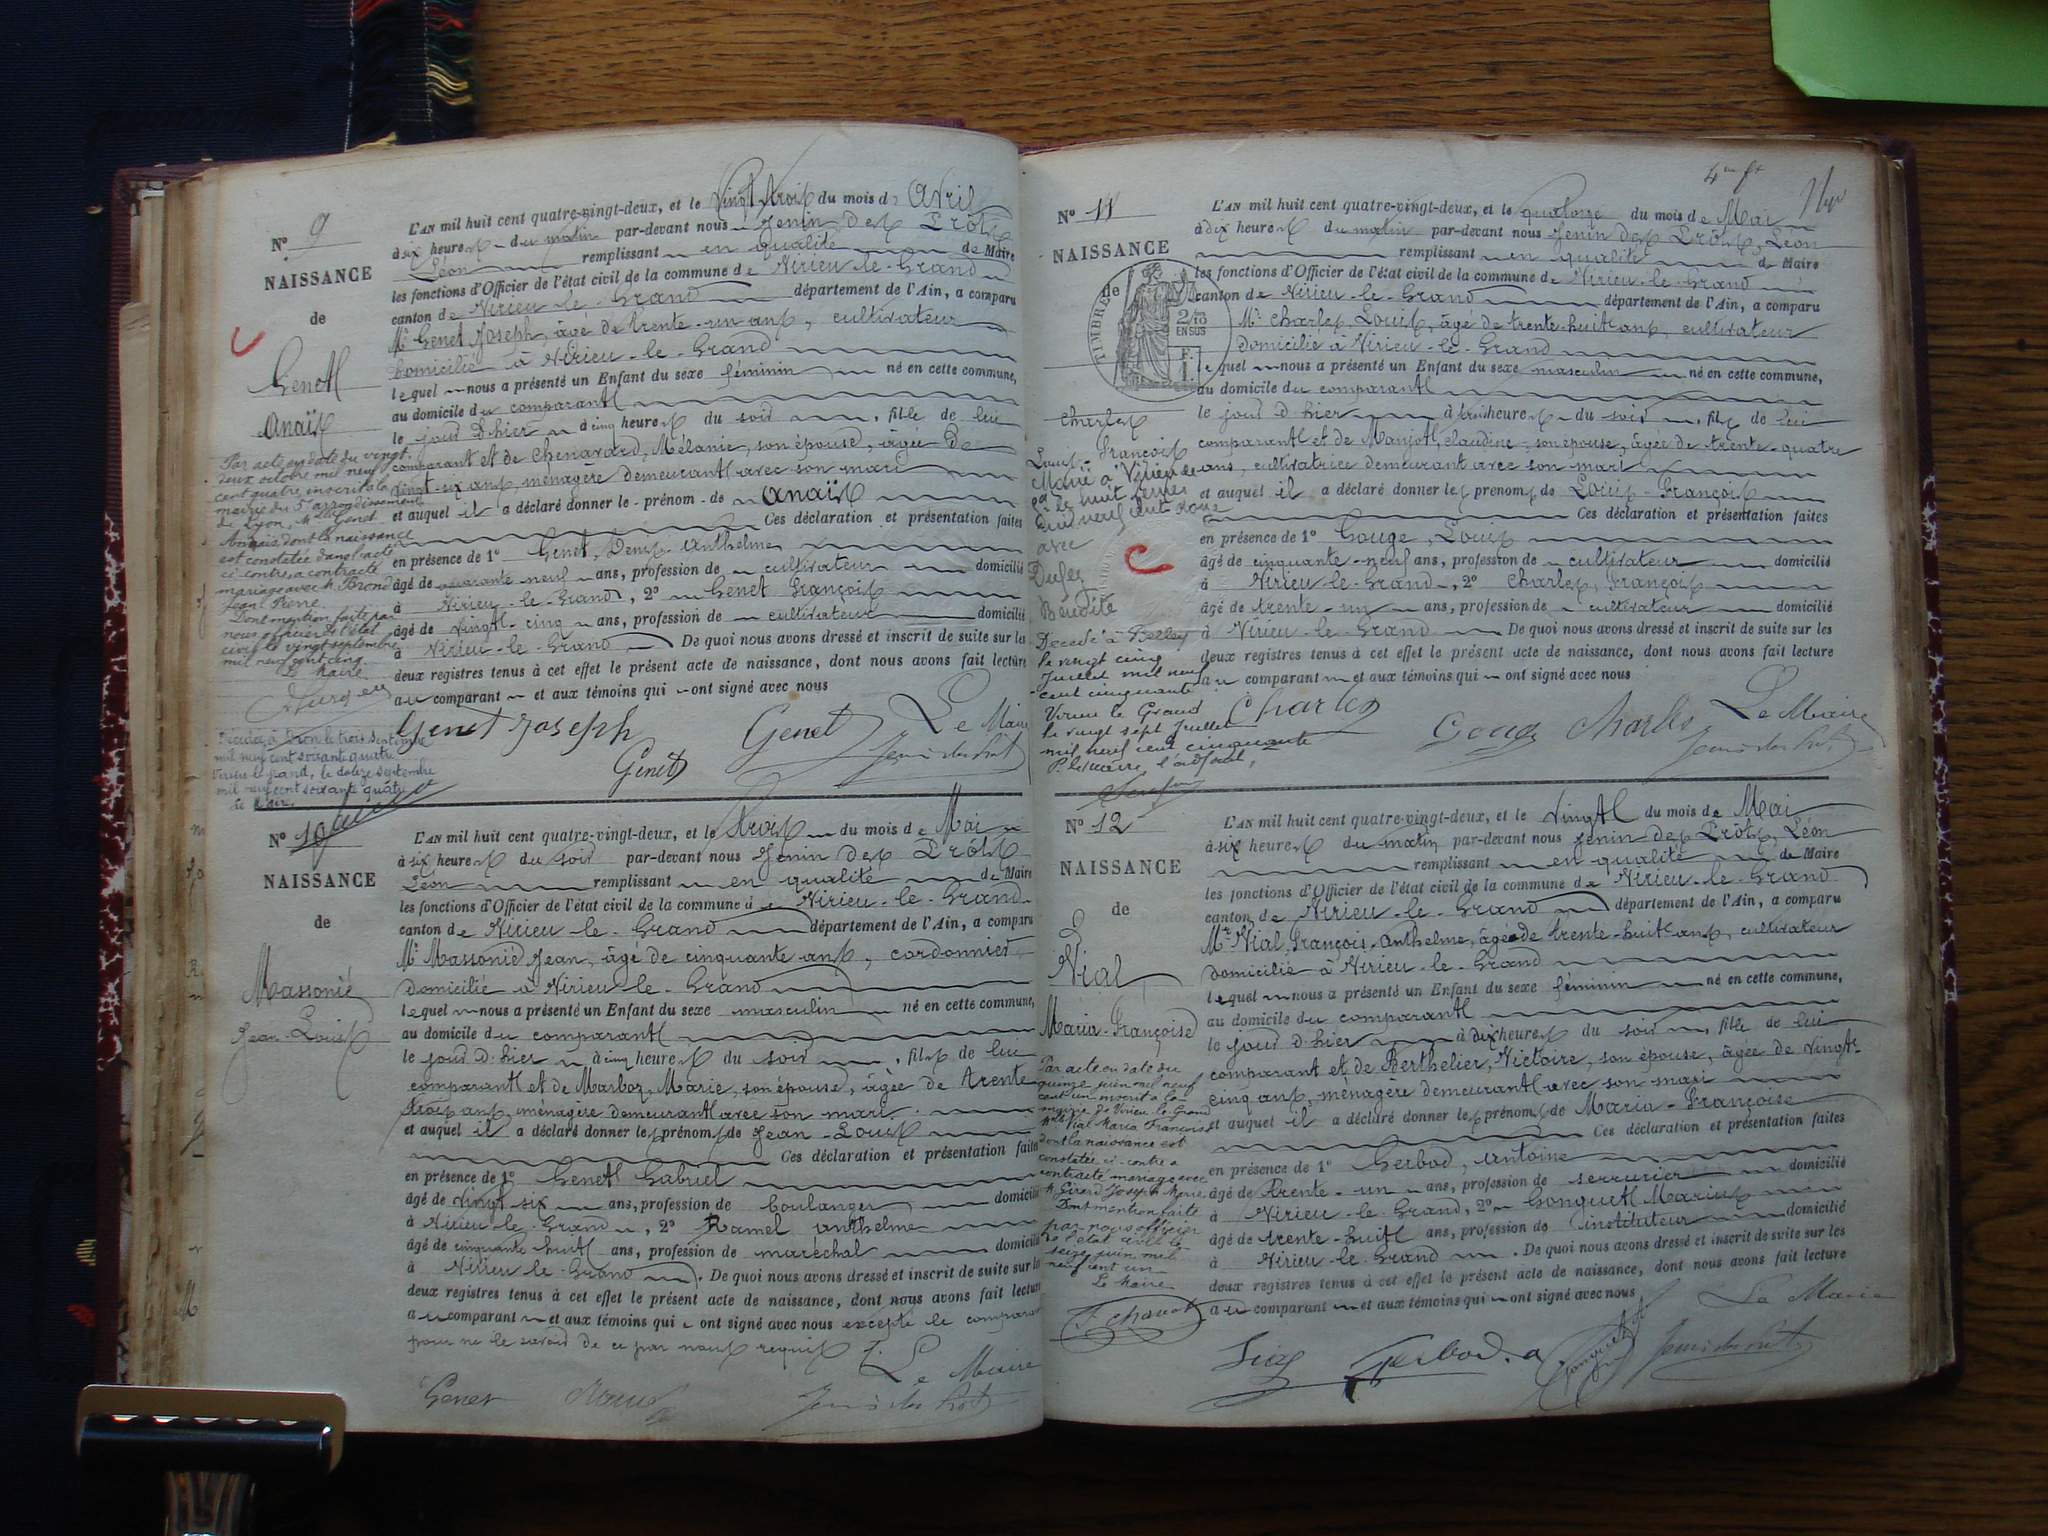 Nº 9
NAISSANCE
de
Genet
Anaïs
L'AN mil huit cent quatre-vingt-deux, et le Vingt trois du mois d'Avril
à six heures du matin par-devant nous Jenin des Prôts
Léon remplissant en qualité de Maire
les fonctions d'Officier de l'état civil de la commune de Virieu-le-Grand
canton de Virieu-le-Grand département de l'Ain, a comparu
Mr Genet Joseph, âgé de trente-un ans, cultivateur
domicilié à Virieu-le-Grand
lequel nous a présenté un Enfant du sexe féminin né en cette commune,
au domicile du comparant
le jour d'hier à cinq heures du soir, fille de lui
comparant et de Chenavard, Mélanie, son épouse, agée de
vingt-six ans, ménagère demeurant avec son mari
et auquel il a déclaré donner le prénom de Anaïs
Ces déclaration et présentation faites
en présence de 1º Genet, Denis Anthelme
âgé de quarante-neuf ans, profession de cultivateur domicilié
à Virieu-le-Grand, 2º Genet François
âgé de vingt-cinq ans, profession de cultivateur domicilié
à Virieu-le-Grand De quoi nous avons dressé et inscrit de suite sur les
deux registres tenus à cet effet le présent acte de naissance, dont nous avons fait lecture
au comparant et aux témoins qui ont signé avec nous
Genet Joseph Genet Le Maire
Genet Jenin des Prots
Par acte en date du vingt
deux octobre mil neuf
cent quatre, inscrit à la
mairie du 5e arrondissement
de Lyon, Mlle Genet
Anaïs dont la naissance
est constatée dans l'acte
ci-contre, a contracté
mariage avec M. Brond
Jean Pierre.
Dont mention faite par
nous officier de l'état
civil le vingt septembre
mil neuf cent cinq.
Le Maire
Décédée à Bron le trois septembre
mil neuf cent soixante quatre
Virieu-le-Grand, le douze septembre
mil neuf cent soixante quatre
Le Maire,
Nº 10
NAISSANCE
de
Massonié
Jean-Louis
L'AN mil huit cent quatre-vingt-deux, et le trois du mois de Mai
à six heures du soir par-devant nous Jenin des Prôts
Léon remplissant en qualité de Maire
les fonctions d'Officier de l'état civil de la commune de Virieu-le-Grand
canton de Virieu-le-Grand département de l'Ain, a comparu
Mr Massonié Jean, âgé de cinquante ans, cordonnier
domicilié à Virieu-le-Grand
lequel nous a présenté un Enfant du sexe masculin né en cette commune,
au domicile du comparant
le jour d'hier à cinq heures du soir, fils de lui
comparant et de Marboz, Marie, son épouse, âgée de trente
trois ans, ménagère demeurant avec son mari
et auquel il a déclaré donner les prénoms de Jean-Louis
Ces déclaration et présentation faites
en présence de 1º Genet Gabriel
âgé de vingt six ans, profession de boulanger domicilié
à Virieu-le-Grand, 2º Ramel Anthelme
âgé de cinquante huit ans, profession de maréchal domicilié
à Virieu-le-Grand. De quoi nous avons dressé et inscrit de suite sur les
deux registres tenus à cet effet le présent acte de naissance, dont nous avons fait lecture
au comparant et aux témoins qui ont signé avec nous excepté le comparant
pour ne le savoir de ce par nous requis
Le Maire
Genet Jenin des Prots
4me ft
Nº 11
NAISSANCE
de
TIMBRE
2/10
EN SUS
Charles
Louis-François
L'AN mil huit cent quatre-vingt-deux, et le quatorze du mois de Mai
à dix heures du matin par-devant nous Jenin des Prôts, Léon
remplissant en qualité de Maire
les fonctions d'Officier de l'état civil de la commune de Virieu-le-Grand
canton de Virieu-le-Grand département de l'Ain, a comparu
Mr Charles, Louis, âgé de trente-huit ans, cultivateur
domicilié à Virieu-le-Grand
lequel nous a présenté un Enfant du sexe masculin né en cette commune,
au domicile du comparant
le jour d'hier à trois heures du soir, fils de lui
comparant et de Manjot, Claudine, son épouse, âgée de trente-quatre
ans, cultivatrice demeurant avec son mari
et auquel il a déclaré donner les prénoms de Louis-François
Ces déclaration et présentation faites
en présence de 1º Gouge, Louis
âgé de cinquante-neuf ans, profession de cultivateur domicilié
à Virieu-le-Grand, 2º Charles, François
âgé de trente-un ans, profession de cultivateur domicilié
à Virieu-le-Grand De quoi nous avons dressé et inscrit de suite sur les
deux registres tenus à cet effet le présent acte de naissance, dont nous avons fait lecture
au comparant et aux témoins qui ont signé avec nous
Charles Gouge Charles Le Maire
Jenin des Prots
Marié à Virieu le
Gd le huit
mil neuf cent
avec
Benoîte
Décédé à Belley
le vingt cinq
Juillet mil neuf
cent cinquante
Virieu le Grand
le vingt sept Juillet
mil neuf cent cinquante
P. le maire, l'adjoint,
Nº 12
NAISSANCE
de
Vial
Maria-Françoise
L'AN mil huit cent quatre-vingt-deux, et le Vingt du mois de Mai
à six heures du matin par-devant nous Jenin des Prôts, Léon
remplissant en qualité de Maire
les fonctions d'Officier de l'état civil de la commune de Virieu-le-Grand
canton de Virieu-le-Grand département de l'Ain, a comparu
Mr Vial, François-Anthelme, âgé de trente-huit ans, cultivateur
domicilié à Virieu-le-Grand
lequel nous a présenté un Enfant du sexe féminin né en cette commune,
au domicile du comparant
le jour d'hier à dix heures du soir, fille de lui
comparant et de Berthelier, Victoire, son épouse, âgée de vingt-
cinq ans, ménagère demeurant avec son mari
et auquel il a déclaré donner les prénoms de Maria-Françoise
Ces déclaration et présentation faites
en présence de 1º Gerbod, Antoine
âgé de trente-un ans, profession de serrurier domicilié
à Virieu-le-Grand, 2º Gonguet Marius
âgé de trente-huit ans, profession de instituteur domicilié
à Virieu-le-Grand. De quoi nous avons dressé et inscrit de suite sur les
deux registres tenus à cet effet le présent acte de naissance, dont nous avons fait lecture
au comparant et aux témoins qui ont signé avec nous
Le Maire
Vial Gerbod. a Jenin des Prots
Par acte en date du
quinze juin mil neuf
cent un inscrit à la
mairie de Virieu-le-Grand
Mlle Vial Maria Françoise
dont la naissance est
constatée ci-contre a
contracté mariage avec
M. Girard Joseph Marie
Dont mention faite
par nous officier
de l'état civil le
seize juin mil
neuf cent un
Le Maire